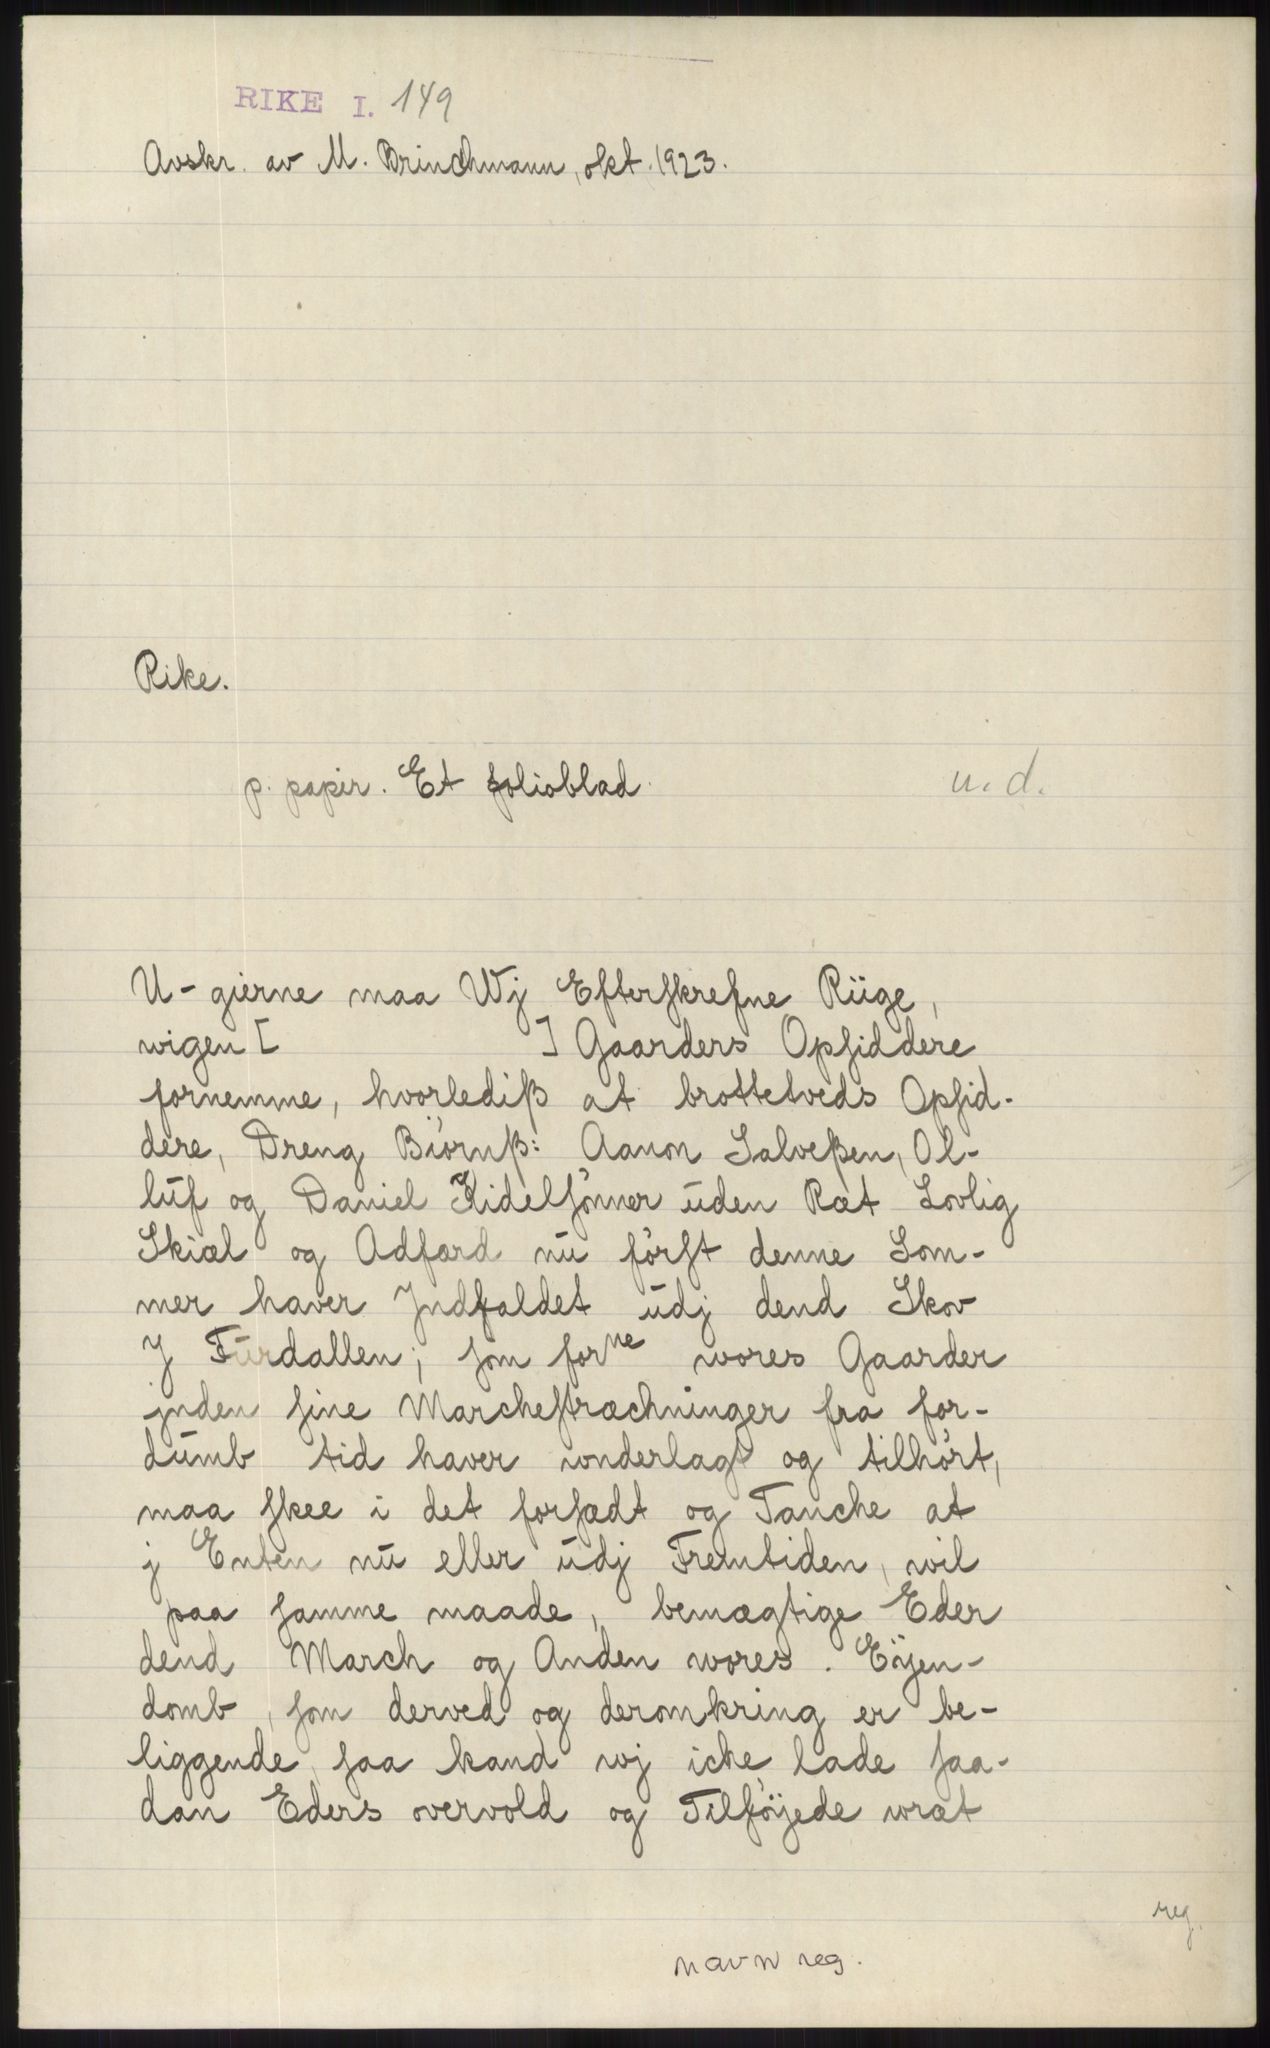 RIKE I. 149
Avskr. av M. Brinchmann, okt. 1923.
Rike.
p. papir. Et folioblad.
u. d.
U-gierne maa Wj Efterſkrefne Rüge,
wigen [ ] Gaarders Opſiddere
fornemme, hvorlediß at brottetveds Opſid-
dere, Dreng Biörnß: Aanon Salveßen, Ol-
luf og Daniel Kidelſönner uden Ræt Lovlig
Skiæl og Adfærd nu förſt denne Som-
mer haver Jndfaldet udj dend Skov
J Furdallen; ſom forne wores Gaarder
jnden ſine Marcheſtræchninger fra for-
dumb tid haver wnderlagt og tilhört,
maa ſkee i det forſædt og Tanche at
j Enten nu eller udj Fremtiden, wil
paa ſamme maade, bemægtige Eder
dend March og Anden wores. Eÿen-
domb, ſom derved og deromkring er be-
liggende, ſaa kand wj icke lade ſaa-
dan Eders overvold og Tilföÿede wræt
reg.
navn reg.